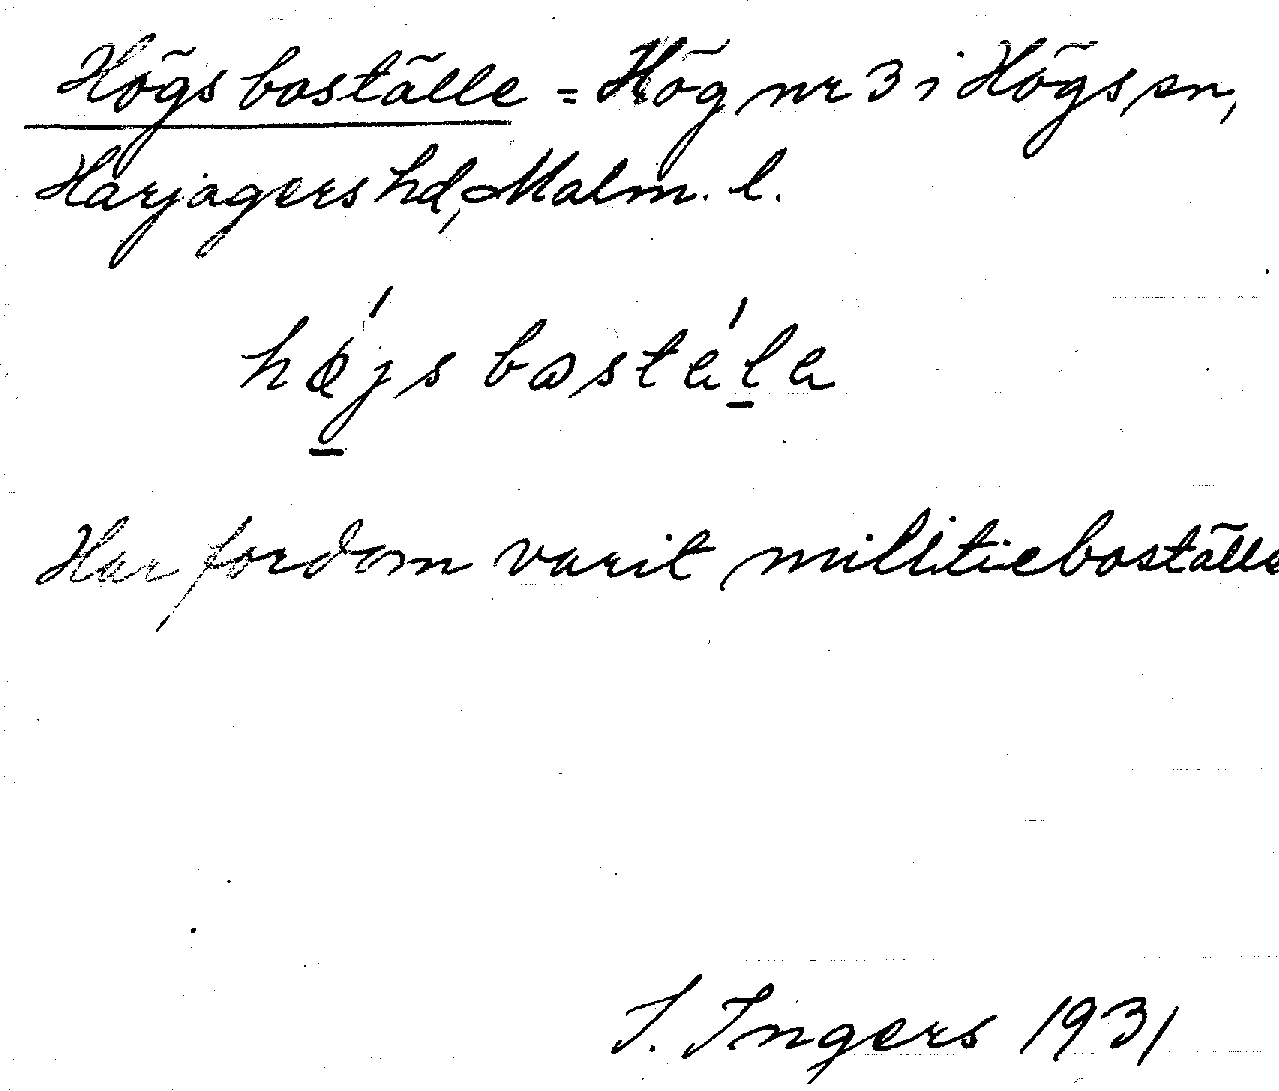 Högs boställe = Hög nr 3 i Högs sn,
Harjagers hd, Malm. l.
hǿjs bostäla
Har fordom varit militieboställe
I. Ingers 1931